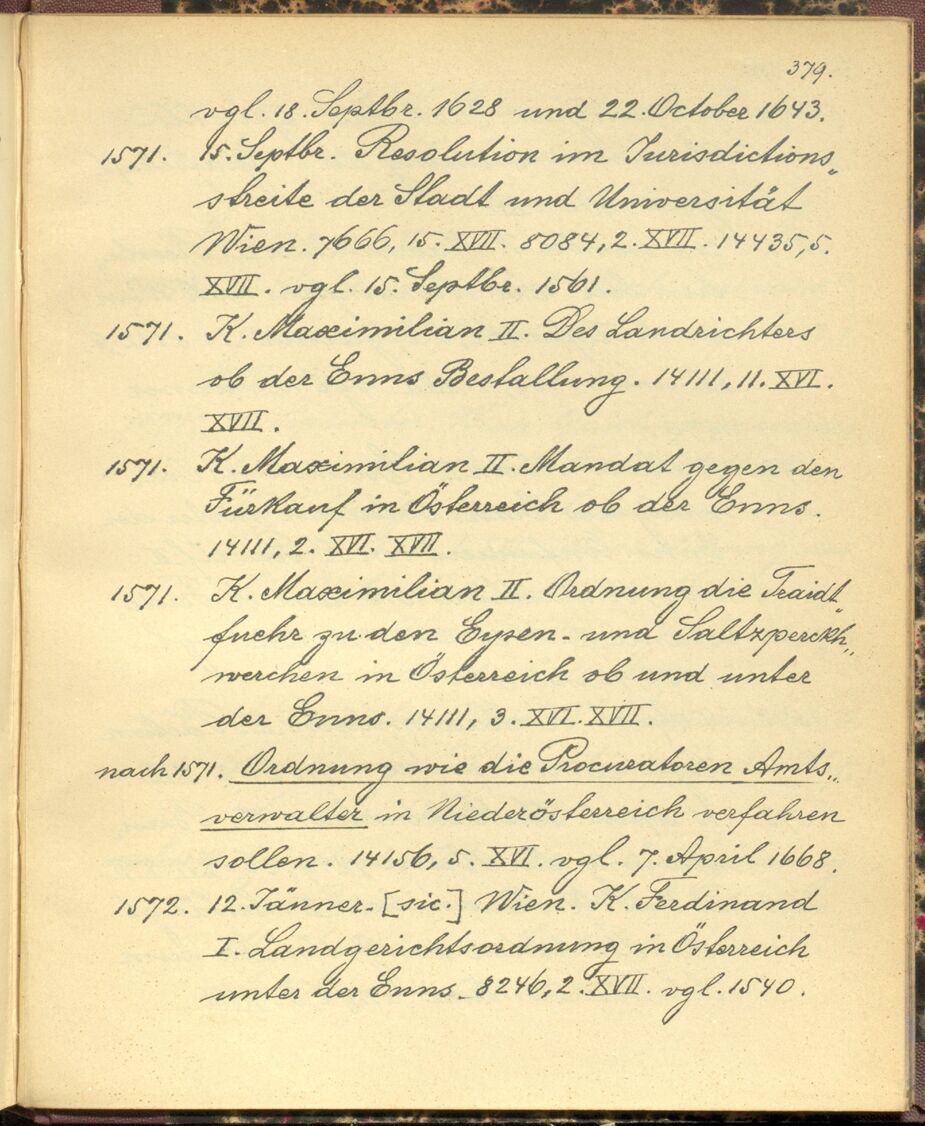 379.
vgl. 18. Septbr. 1628 und 22. October 1643.
1571. 15. Septbr. Resolution im Jurisdictions„
streite der Stadt und Universität
Wien. 7666, 15. XVII. 8084, 2. XVII. 14435, 5.
XVII. vgl. 15. Septbr. 1561.
1571. K. Maximilian II. Des Landrichters
ob der Enns Bestallung. 14111, 11. XVI.
XVII.
1571. K. Maximilian II. Mandat gegen den
Fürkauf in Österreich ob der Enns.
14111, 2. XVI. XVII.
1571. K. Maximilian II. Ordnung die Traidt„
fuehr zu den Eysen- und Saltzperckh„
werchen in Österreich ob und unter
der Enns. 14111, 3. XVI. XVII.
nach 1571. Ordnung wie die Procuratoren Amts„
verwalter in Niederösterreich verfahren
sollen. 14156, 5. XVI. vgl. 7. April 1668.
1572. 12. Jänner. [sic.] Wien. K. Ferdinand
I. Landgerichtsordnung in Österreich
unter der Enns. 8246, 2. XVII. vgl. 1540.